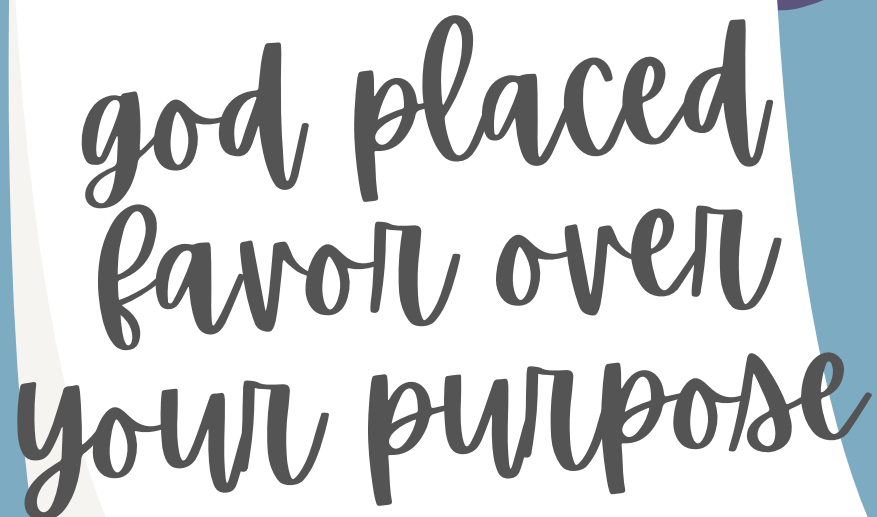 god placed
favor over
your purpose